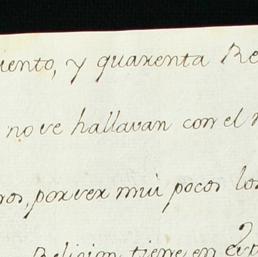 uento, y quarenta Re
no ve hallavan con el
ros, por ver mui pocos los
Religion tiene en